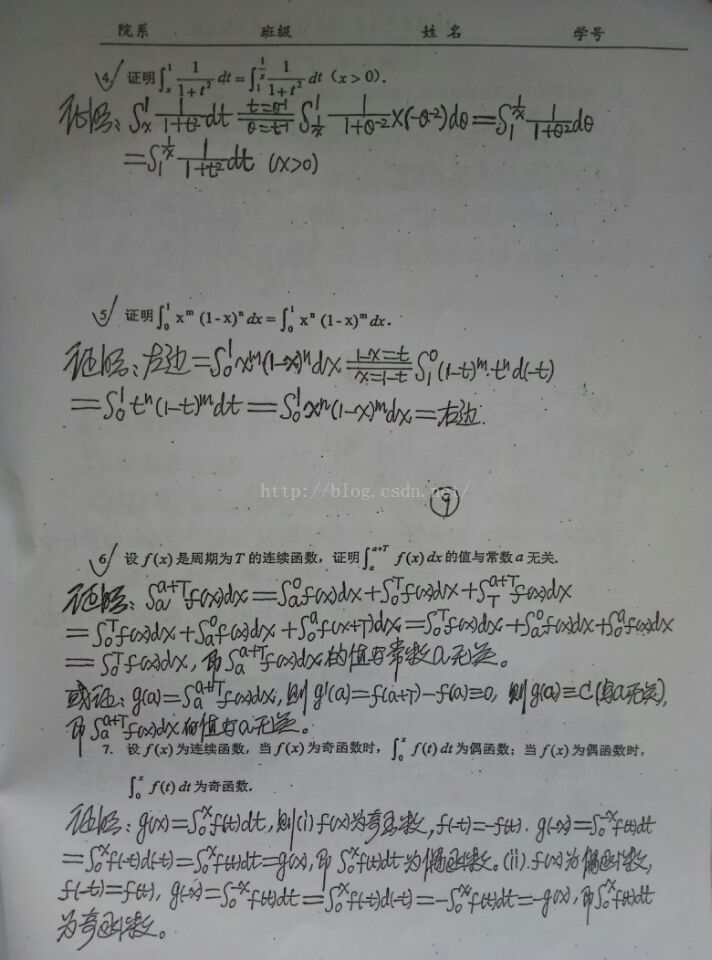 院系 班级 姓名 学号
4. 证明∫_x^1 1/(1+t²) dt=∫_1^{1/x} 1/(1+t²) dt (x>0).
证明:∫_x^1 1/(1+t²) dt (t=θ⁻¹ / θ=t⁻¹)= ∫_{1/x}^1 1/(1+θ⁻²)×(-θ⁻²)dθ=∫_1^{1/x} 1/(1+θ²) dθ
=∫_1^{1/x} 1/(1+t²) dt (x>0)
5. 证明∫_0^1 x^m (1-x)^n dx=∫_0^1 x^n (1-x)^m dx.
证明:左边=∫_0^1 x^m(1-x)^n dx (1-x=t / x=1-t)= ∫_1^0 (1-t)^m·t^n d(-t)
=∫_0^1 t^n(1-t)^m dt=∫_0^1 x^n(1-x)^m dx=右边.
http://blog.csdn.net/
9
6. 设 f(x)是周期为T的连续函数,证明∫_a^{a+T} f(x)dx的值与常数a无关.
证明:∫_a^{a+T} f(x)dx=∫_a^0 f(x)dx+∫_0^T f(x)dx+∫_T^{a+T} f(x)dx
=∫_0^T f(x)dx+∫_a^0 f(x)dx+∫_0^a f(x+T)dx=∫_0^T f(x)dx+∫_a^0 f(x)dx+∫_0^a f(x)dx
=∫_0^T f(x)dx,即∫_a^{a+T} f(x)dx的值与常数a无关。
或证:g(a)=∫_a^{a+T} f(x)dx,则g'(a)=f(a+T)-f(a)≡0, 则g(a)≡C(与a无关),
即∫_a^{a+T} f(x)dx的值与a无关。
7. 设 f(x)为连续函数,当f(x)为奇函数时,∫_0^x f(t)dt为偶函数;当f(x)为偶函数时,
∫_0^x f(t)dt为奇函数.
证明:g(x)=∫_0^x f(t)dt,则(i)f(x)为奇函数,f(-t)=-f(t). g(-x)=∫_0^{-x} f(t)dt
=∫_0^x f(-t)d(-t)=∫_0^x f(t)dt=g(x),即∫_0^x f(t)dt为偶函数。(ii).f(x)为偶函数,
f(-t)=f(t), g(-x)=∫_0^{-x} f(t)dt=∫_0^x f(-t)d(-t)=-∫_0^x f(t)dt=-g(x),即∫_0^x f(t)dt
为奇函数。